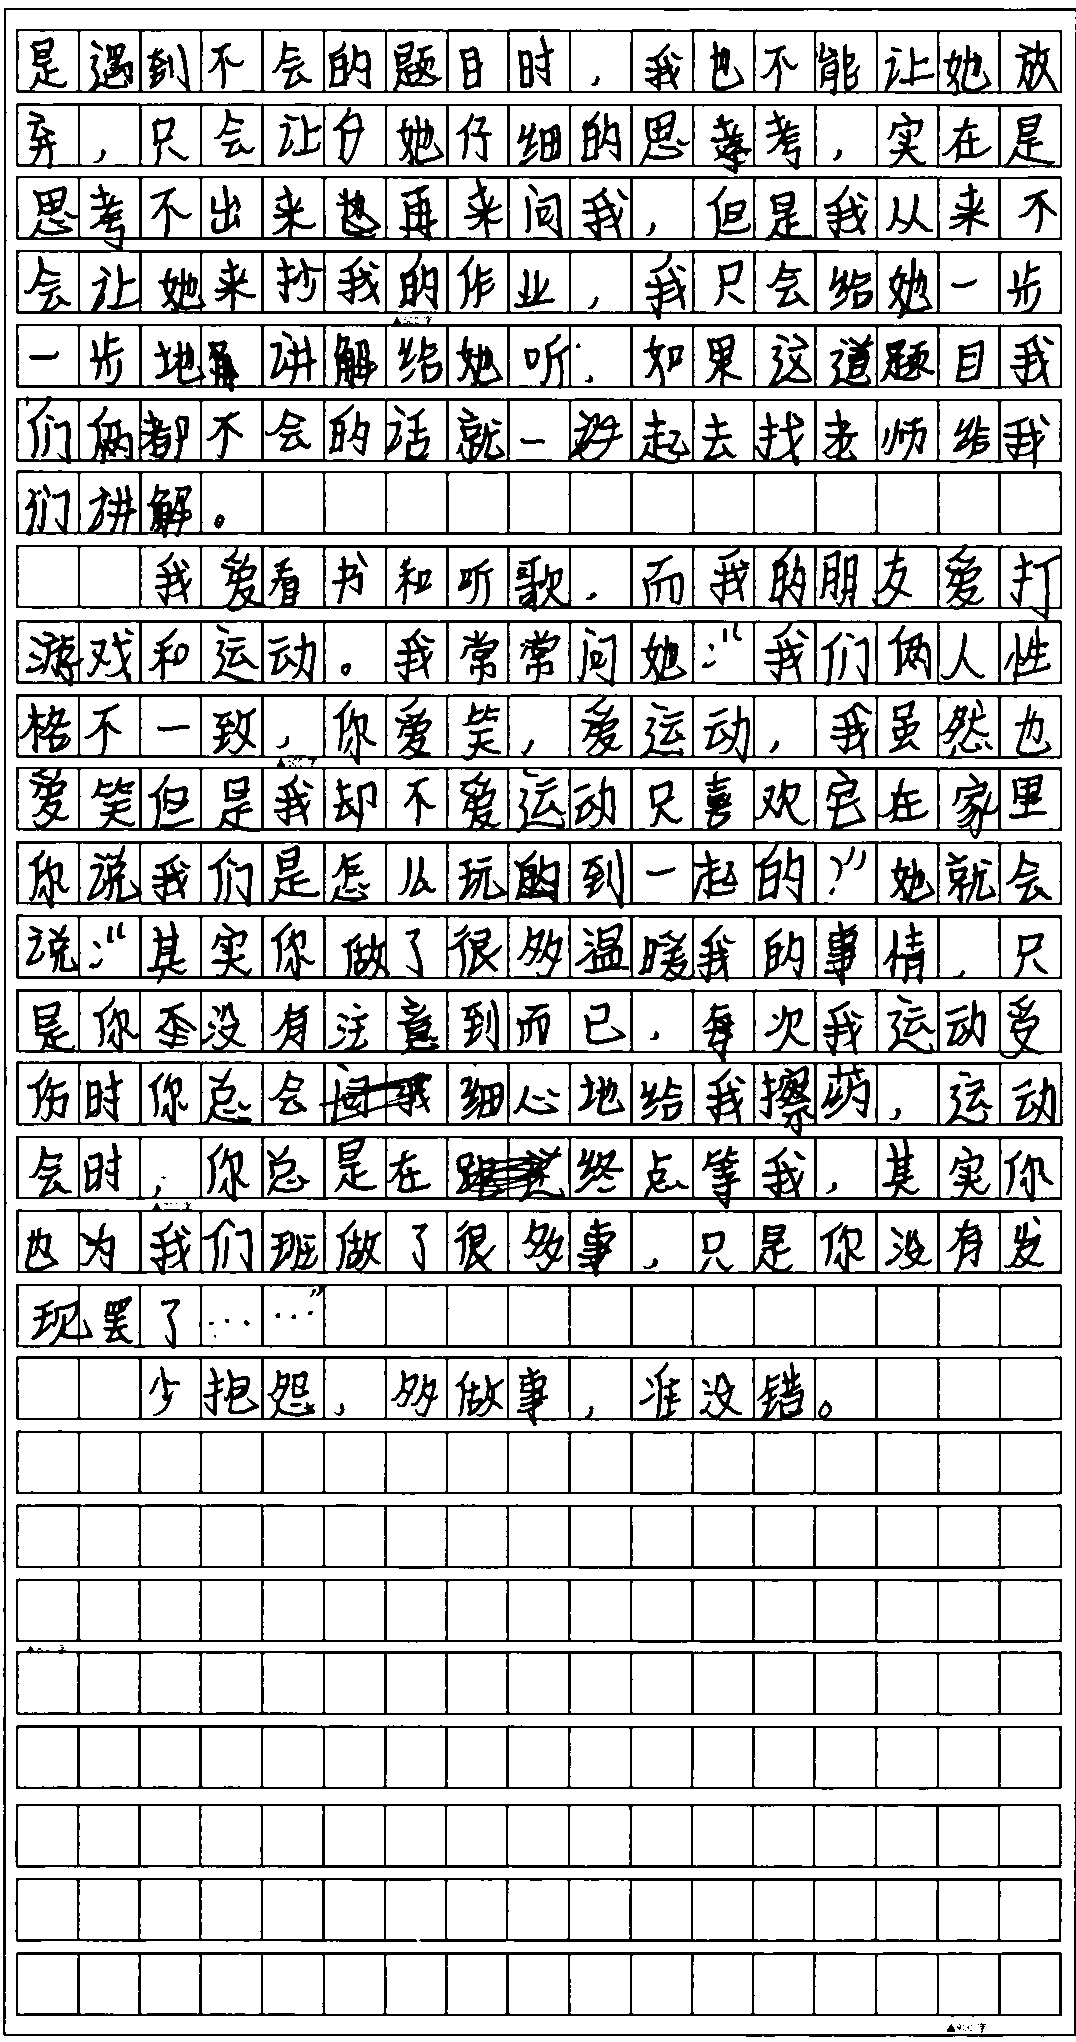 是遇到不会的题目时，我也不能让她放
弃，只会让她仔细的思考，实在是
思考不出来再来问我，但是我从来不
会让她来抄我的作业，我只会给她一步
一步地讲解给她听，如果这道题目我
们俩都不会的话就一起去找老师给我
们讲解。
我爱看书和听歌，而我的朋友爱打
游戏和运动。我常常问她：“我们俩人性
格不一致，你爱笑，爱运动，我虽然也
爱笑但是我却不爱运动只喜欢宅在家里
你说我们是怎么玩的到一起的？”她就会
说：“其实你做了很多温暖我的事情，只
是你没有注意到而已，每次我运动受
伤时你总会细心地给我擦药，运动
会时，你总是在终点等我，其实你
也为我们班做了很多事，只是你没有发
现罢了……”
少抱怨，多做事，准没错。